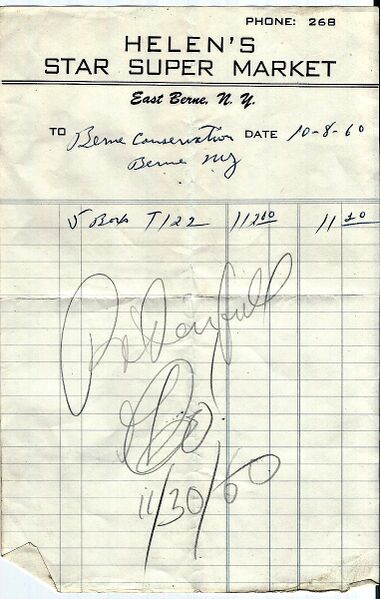 PHONE: 268
HELEN'S
STAR SUPER MARKET
East Berne, N. Y.
TO Berne Conservation DATE 10-8-60
Berne NY
5 Box T122 11 20 11 20
Pd
11/30/60